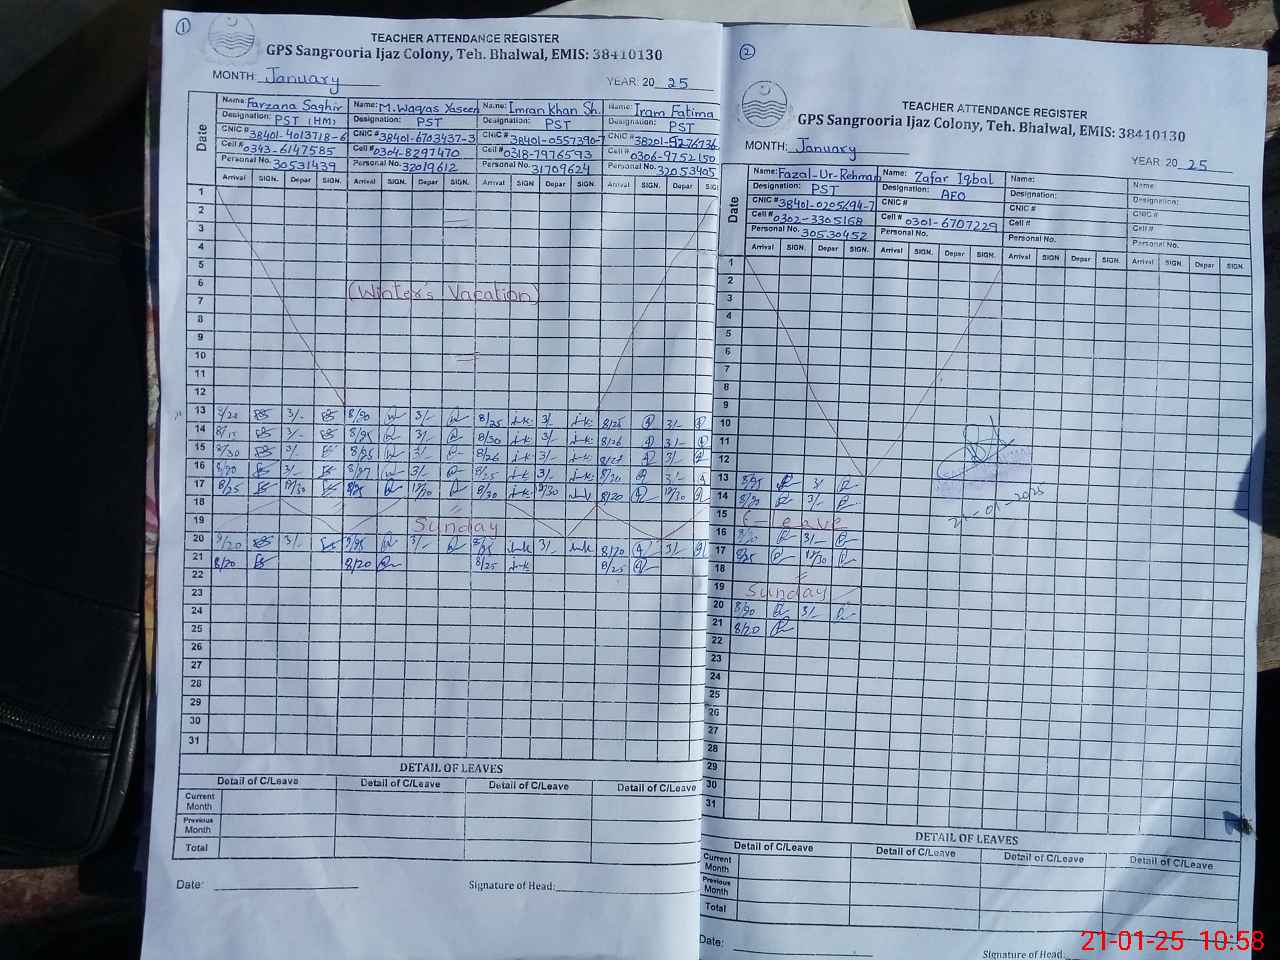 1
TEACHER ATTENDANCE REGISTER
GPS Sangrooria Ijaz Colony, Teh. Bhalwal, EMIS: 38410130
MONTH: January YEAR: 20 25
Date
Name: Farzana Saghir Name: M. Waqas Yaseen Name: Imran Khan Sh. Name: Iram Fatima
Designation: PST (HM) Designation: PST Designation: PST Designation: PST
CNIC # 38401-4013718-6 CNIC # 38401-6703437-3 CNIC # 38401-0557390-7 CNIC # 38201-9276736
Cell # 0343-6147585 Cell # 0304-8297470 Cell # 0318-7976593 Cell # 0306-9752150
Personal No. 30531439 Personal No. 32019612 Personal No. 31709624 Personal No. 32053405
Arrival SIGN. Depar SIGN. Arrival SIGN. Depar SIGN. Arrival SIGN Depar SIGN. Arrival SIGN. Depar SIG
1
2
3
4
5
6
7 (Winter's Vacation)
8
9
10
11
12
13 3/- 8/20 3/- 8/25 3/- 8/25 3/-
14 8/15 3/- 8/25 3/- 8/30 3/- 8/26 3/-
15 8/30 3/- 8/25 3/- 8/26 3/- 3/-
16 8/20 3/- 8/27 3/- 8/25 3/- 8/20 3/-
17 8/25 12/30 8/25 12/30 8/30 12/30 8/20 12/30
18
19 Sunday
20 8/20 3/- 8/25 3/- 8/25 3/- 8/20 3/-
21 8/20 8/20 8/25 8/25
22
23
24
25
26
27
28
29
30
31
DETAIL OF LEAVES
Detail of C/Leave Detail of C/Leave Detail of C/Leave Detail of C/Leave
Current Month
Previous Month
Total
Date: Signature of Head:
2
TEACHER ATTENDANCE REGISTER
GPS Sangrooria Ijaz Colony, Teh. Bhalwal, EMIS: 38410130
MONTH: January YEAR: 20 25
Date
Name: Fazal-Ur-Rehman Name: Zafar Iqbal Name: Name:
Designation: PST Designation: AEO Designation: Designation:
CNIC # 38401-0205694-7 CNIC # CNIC # CNIC #
Cell # 0302-3305168 Cell # 0301-6707229 Cell # Cell #
Personal No. 30530452 Personal No. Personal No. Personal No.
Arrival SIGN. Depar SIGN. Arrival SIGN. Depar SIGN. Arrival SIGN Depar SIGN. Arrival SIGN. Depar SIGN.
1
2
3
4
5
6
7
8
9
10
11
12
13 8/25 3/
14 8/20 3/-
15 Leave
21-01-2025
16 8/20 3/-
17 8/25 12/30
18
19 Sunday
20 8/20 3/-
21 8/20
22
23
24
25
26
27
28
29
30
31
DETAIL OF LEAVES
Detail of C/Leave Detail of C/Leave Detail of C/Leave Detail of C/Leave
Current Month
Previous Month
Total
Date: Signature of Head:
21-01-25 10:58